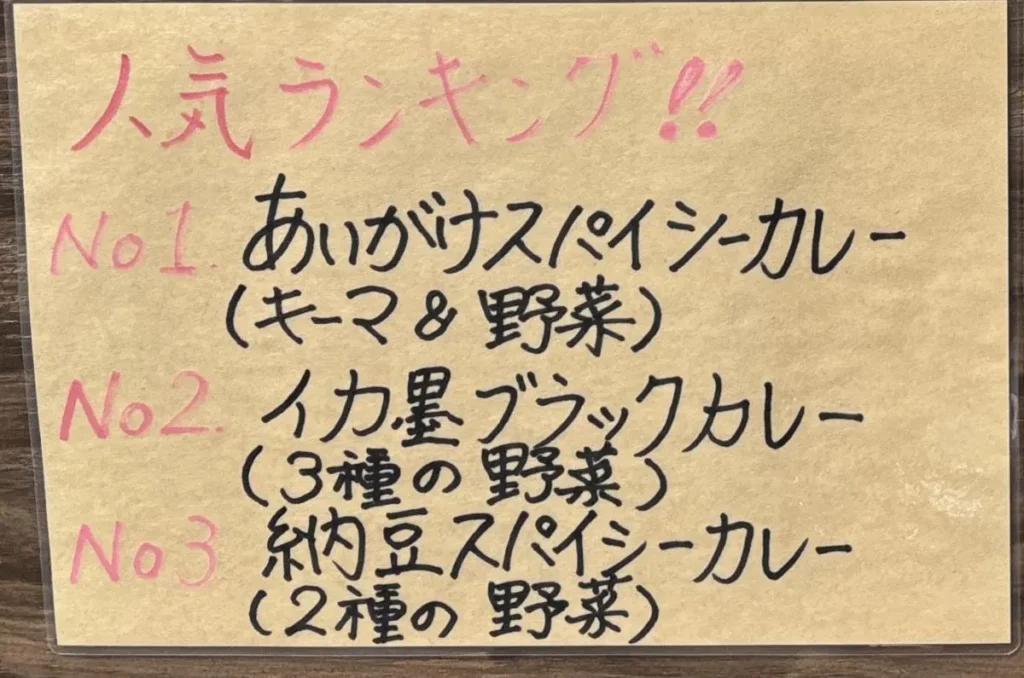 人気ランキング!!
No1. あいがけスパイシーカレー
(キーマ & 野菜)
No2. イカ墨ブラックカレー
(3種の野菜)
No3 納豆スパイシーカレー
(2種の野菜)